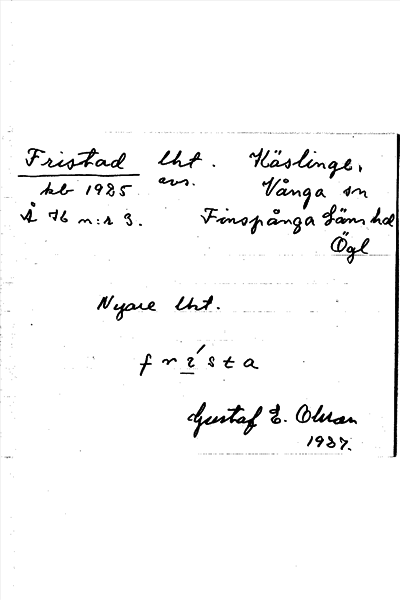 Fristad lht. Häslinge,
kb 1925 avs. Vånga sn
Å 76 n:r 3. Finspånga läns hd
Ögl
Nyare lht.
frísta
Gustaf E. Olsson
1937.